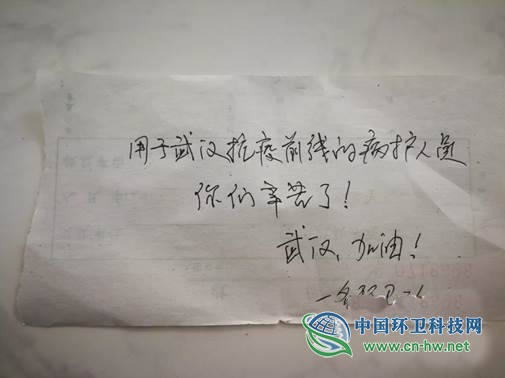 用于武汉抗疫前线的病护人员
你们辛苦了！
武汉，加油！
一名环卫
中国环卫科技网
www.cn-hw.net